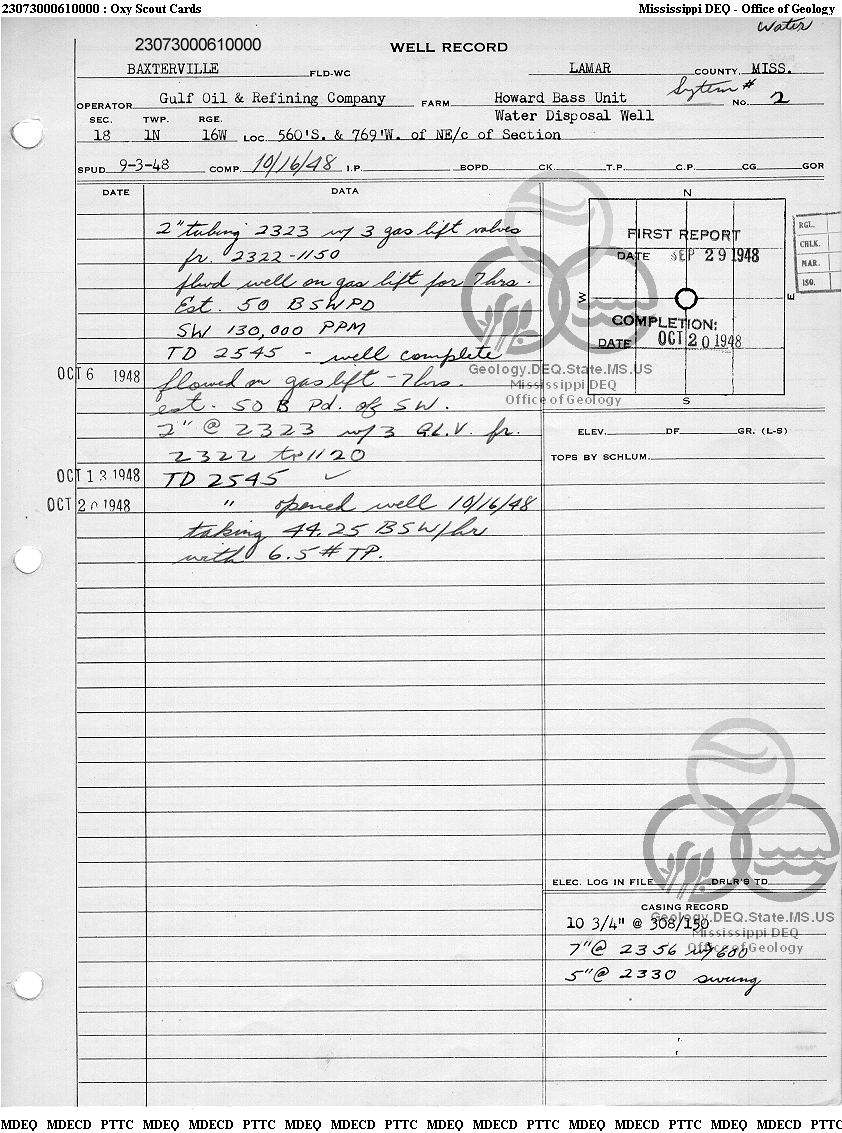 23073000610000 : Oxy Scout Cards
Mississippi DEQ - Office of Geology
Water
23073000610000
WELL RECORD
BAXTERVILLE FLD-WC LAMAR COUNTY, MISS.
System #
OPERATOR Gulf Oil & Refining Company FARM Howard Bass Unit NO. 2
Water Disposal Well
SEC. TWP. RGE.
18 1N 16W LOC. 560'S. & 769'W. of NE/c of Section
SPUD 9-3-48 COMP. 10/16/48 I.P. BOPD CK. T.P. C.P. CG GOR
DATE DATA
2" tubing 2323 w/ 3 gas lift valves
fr. 2322-1150
flwd well on gas lift for 7 hrs.
Est. 50 BSWPD
SW 130,000 PPM
TD 2545 - well complete
OCT 6 1948 flowed on gas lift - 7 hrs.
est. 50 B Pd. of SW.
2" @ 2323 w/3 G.L.V. fr.
2322 to 1120
OCT 13 1948 TD 2545 ✓
OCT 20 1948 " opened well 10/16/48
taking 44.25 BSW/hr
with 6.5 # TP.
N
FIRST REPORT
DATE SEP 29 1948
W E
COMPLETION:
DATE OCT 20 1948
S
RGL.
CHLK.
MAR.
ISO.
Geology.DEQ.State.MS.US
Mississippi DEQ
Office of Geology
ELEV. DF GR. (L-S)
TOPS BY SCHLUM.
ELEC. LOG IN FILE DRLR'S TD
CASING RECORD
10 3/4" @ 308/150
7" @ 2356 w/600
5" @ 2330 swung
Geology.DEQ.State.MS.US
Mississippi DEQ
Office of Geology
MDEQ MDECD PTTC MDEQ MDECD PTTC MDEQ MDECD PTTC MDEQ MDECD PTTC MDEQ MDECD PTTC MDEQ MDECD PTTC